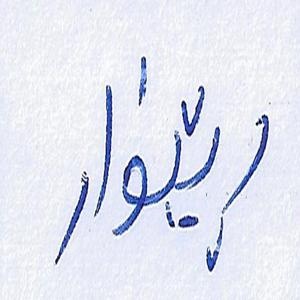 ڕێبوار